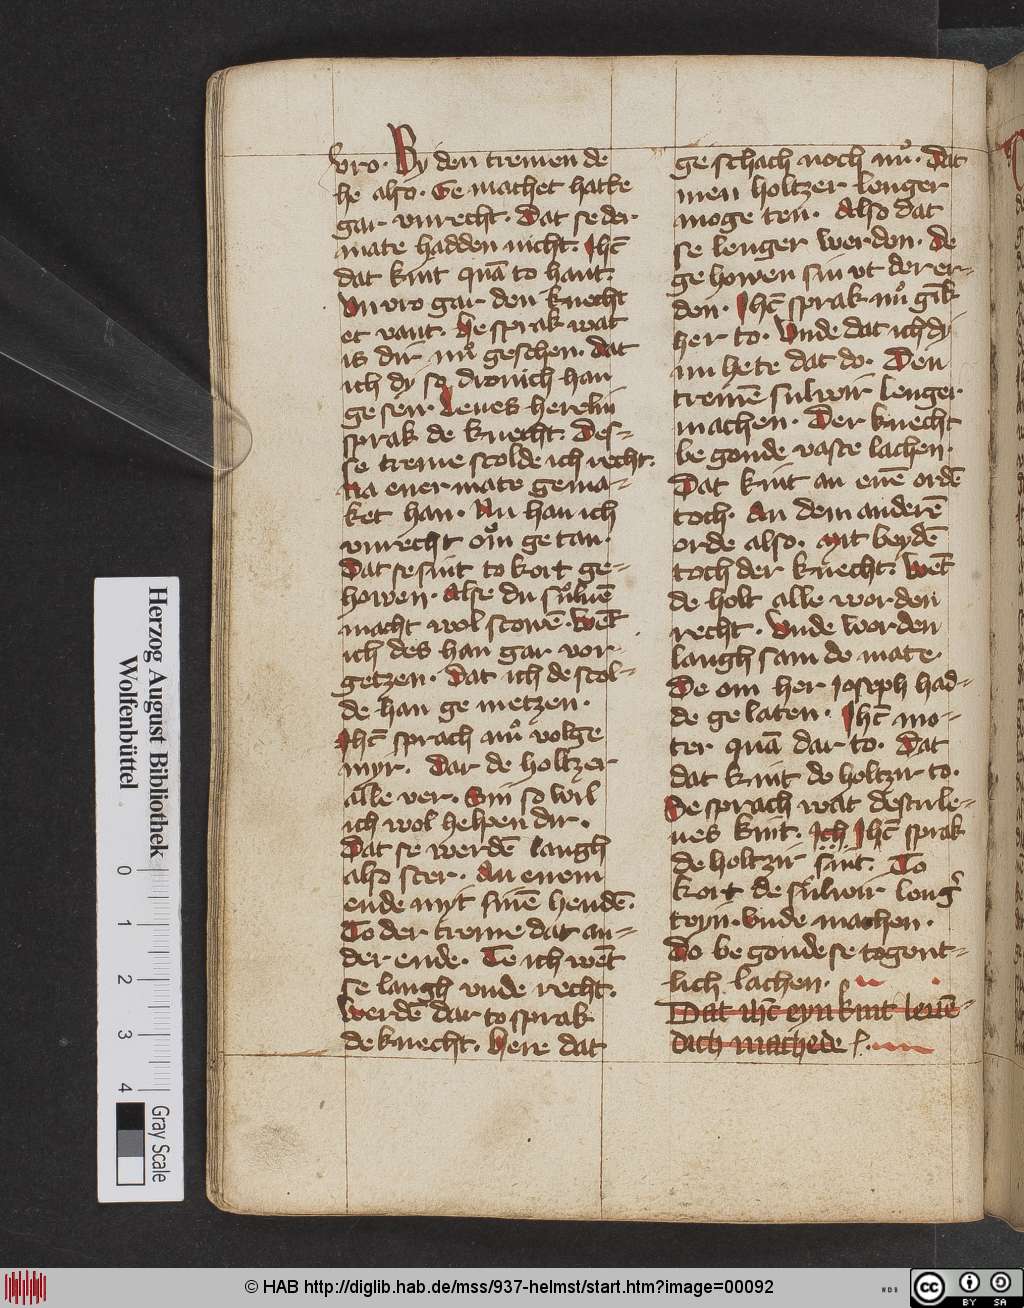 vro. By den tremen de
he also. Ge machet hatte
gar vnrecht. Dat se der
mate hadden nicht. Ihc̄
dat kint quā to hant.
Vn vro gar den knecht
et vant. He sprak wat
is dir nů geschen. dat
ich dy so drouich han
ge sen. Leues herelin
sprak de knecht. Des-
se treme scolde ich recht.
Na ener mate gema-
ket han. Nu han ich
vnrecht om ge tan.
Dat se sint to kort ge-
howen. Alse du sůluē
macht wol scowē. wēt
ich des han gar vor-
getzen. Dat ich de scol-
de han ge metzen.
Ihc̄ sprach nů volge
myr. Dar de holtzer
alle ver. Sin so wil
ich wol helpen dir.
Dat se werdē langh
also ster. An enem
ende myt sinē hendē.
To der treme dat an-
der ende. Te ich wēt
se langh vnde recht.
Werdē dar to sprak
de knecht. Here dat
ge schach noch nů. Dat
men holtzer lenger
moge ten. Also dat
se lenger werden. De
ge howen sin vt der er-
den. Ihc̄ sprak nů gīk
her to. Vnde dat ich dy
nu hete dat do. Den
tremē suluir lenger
machen. Der knecht
be gonde vaste lachen.
Dat kint an enē ordē
toch. An dem anderē
orde also. Mit beydē
toch der knecht. Wēt
de holt alle worden
recht. Vnde worden
langh sam de mate.
De om her Joseph had-
de ge laten. Ihc̄ mo-
ter quā dar to. Dat
dat kint de holtzir to.
Se sprach wat destu le-
ues kint. Ich Ihc̄ sprak
de holtzir sint. To
kort de suluir leng
teyn. Vnde machen.
Do be gonde se togent-
lich lachen.
Dat ihc̄ eyn kint leuē-
dich machede
Herzog August Bibliothek
Wolfenbüttel
0 1 2 3 4
Gray Scale
© HAB http://diglib.hab.de/mss/937-helmst/start.htm?image=00092
WDB
cc BY SA